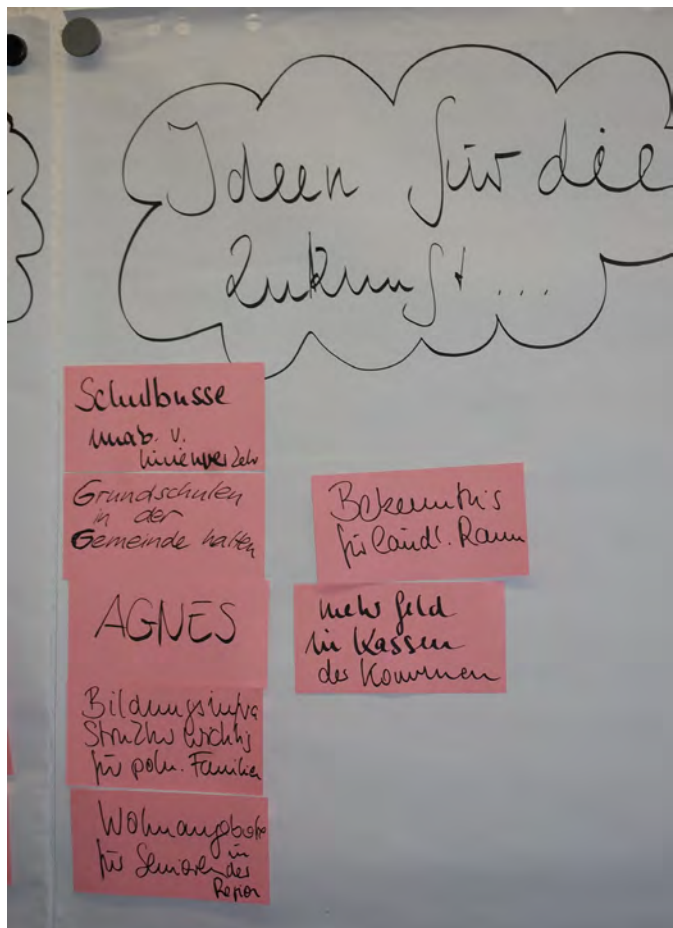 Ideen für die
Zukunft...
Schulbusse
unab. v.
Linienverkehr
Grundschulen
in der
Gemeinde halten
AGNES
Bildungsinfra
Struktur wichtig
für poln. Familien
Wohnangebote
für Senioren in
der
Region
Bekenntnis
für ländl. Raum
mehr Geld
in Kassen
der Kommunen